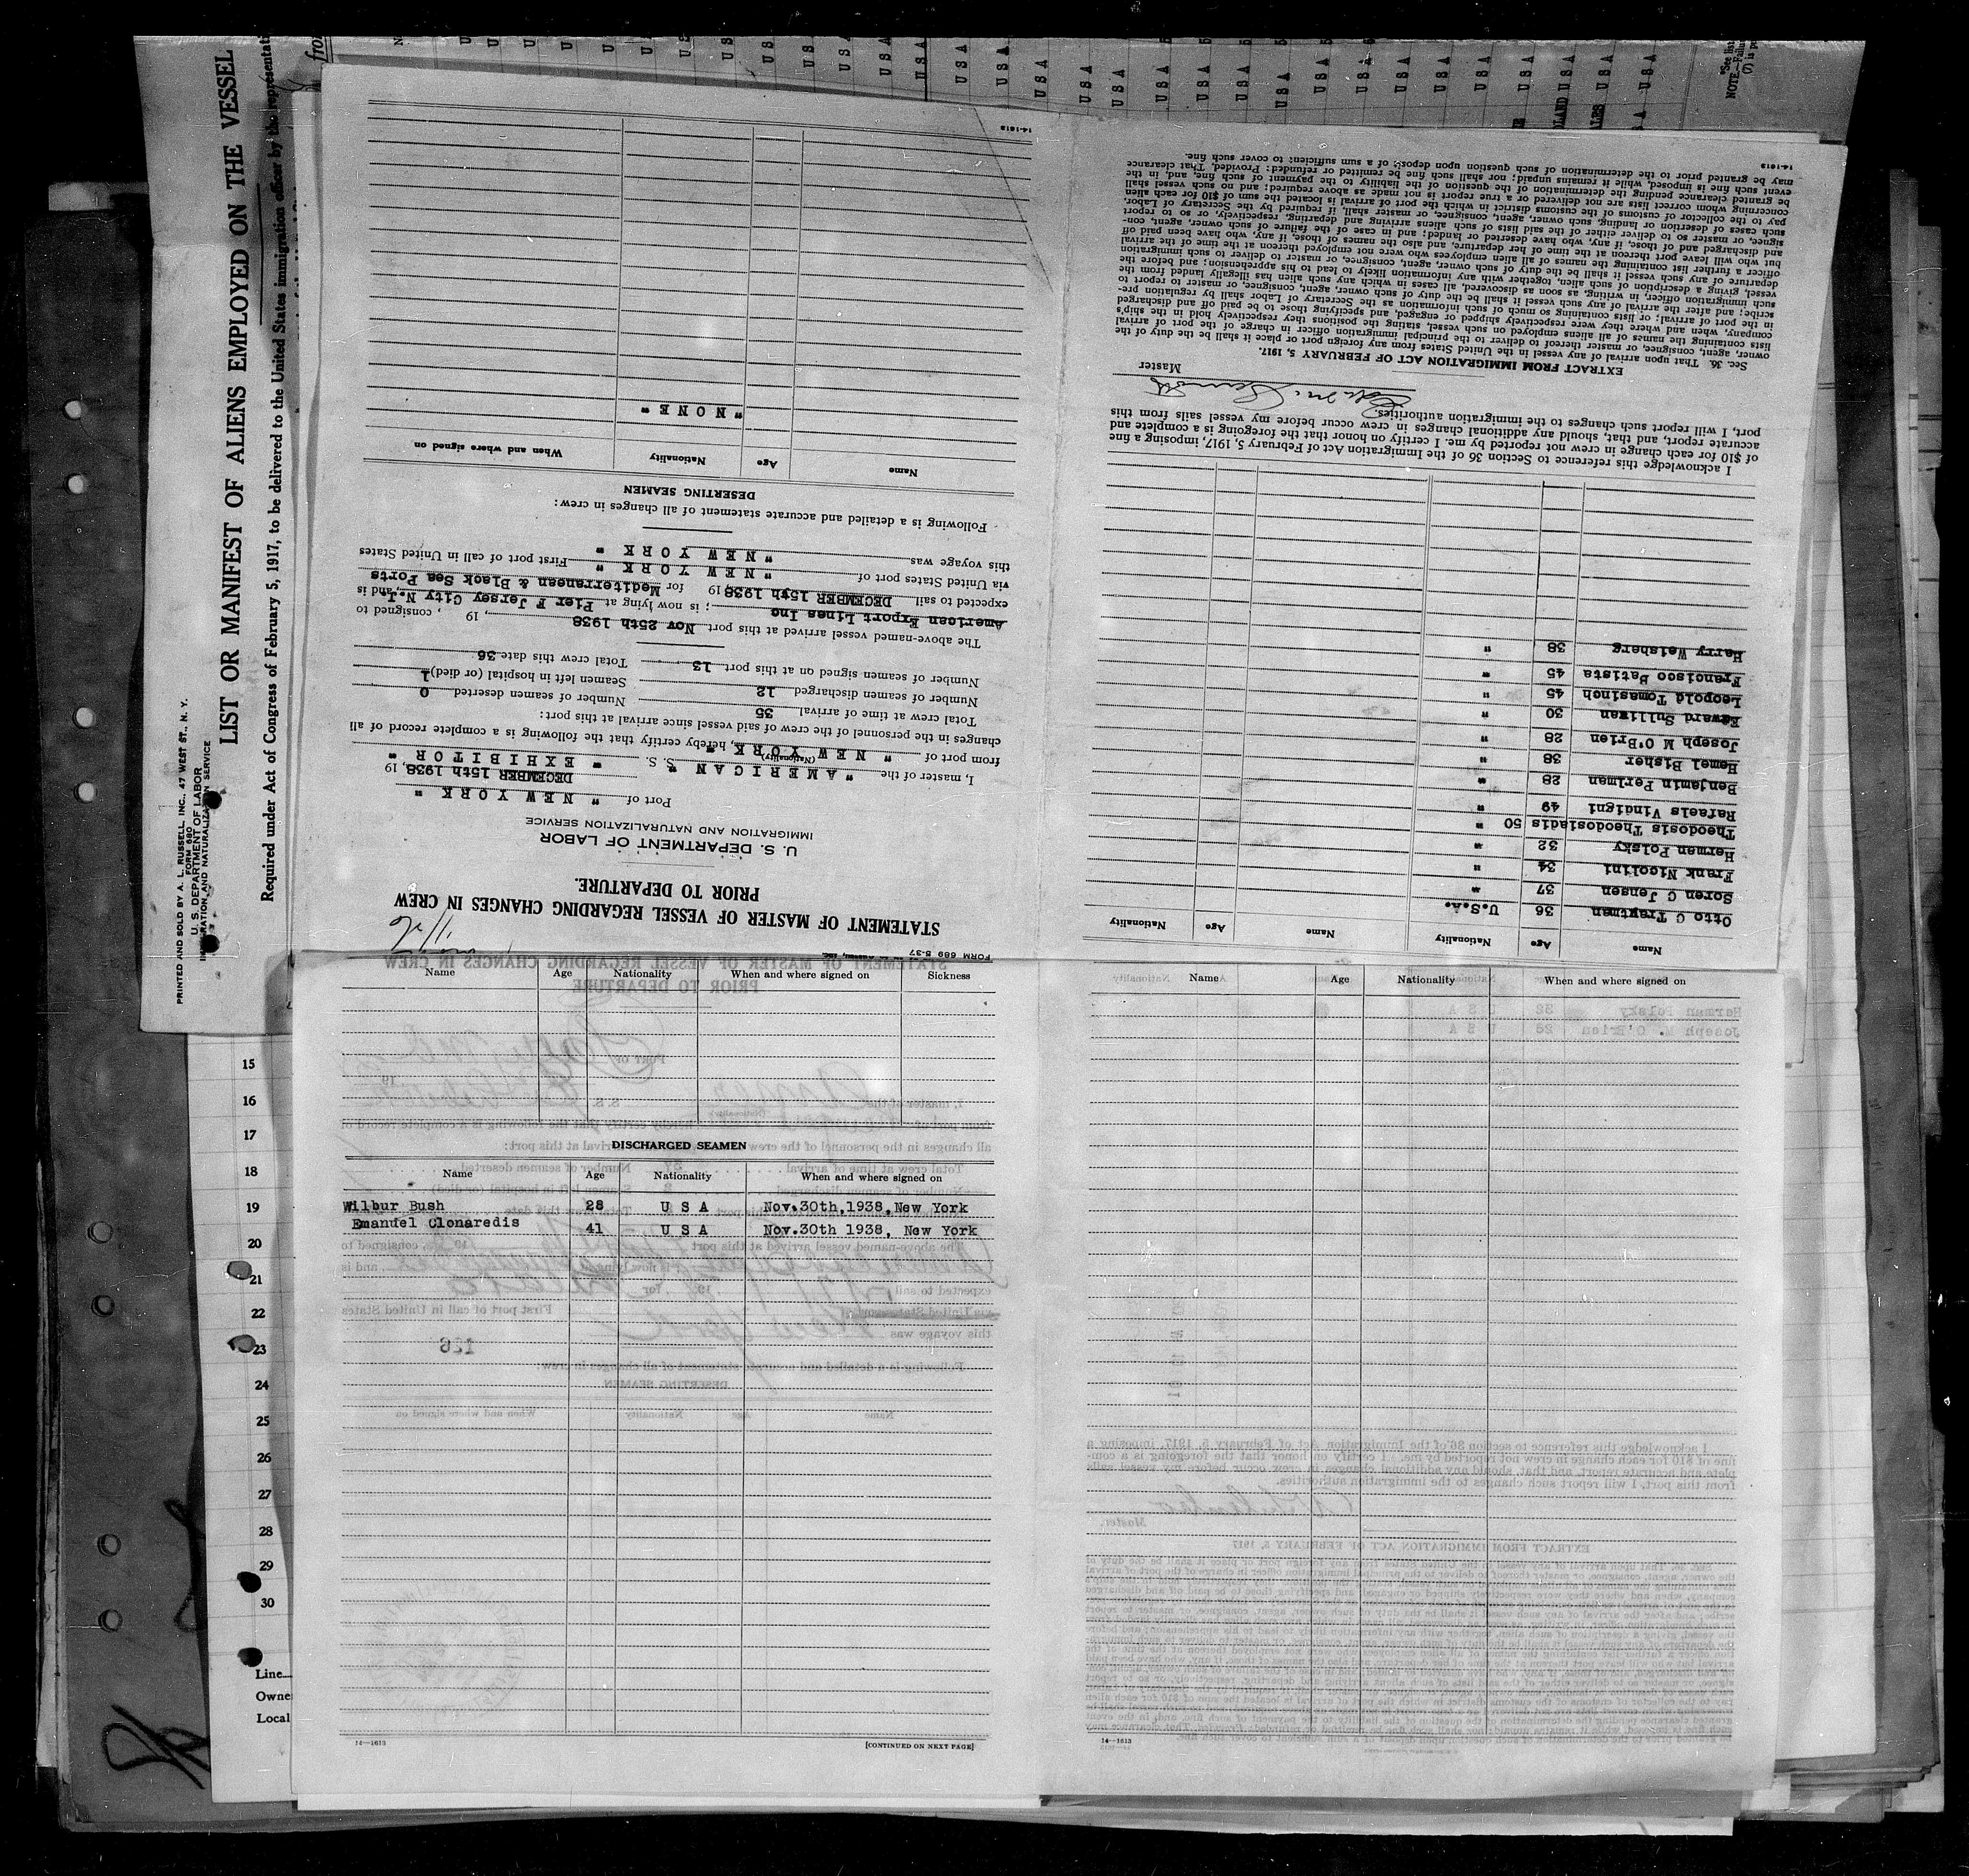 LIST OR MANIFEST OF ALIENS EMPLOYED ON THE VESSEL
Required under Act of Congress of February 5, 1917, to be delivered to the United States immigration officer by the representati
PRINTED AND SOLD BY A. L. RUSSELL, INC., 47 WEST ST., N. Y.
FORM 680
U. S. DEPARTMENT OF LABOR
IMMIGRATION AND NATURALIZATION SERVICE
FORM 689 5-37
STATEMENT OF MASTER OF VESSEL REGARDING CHANGES IN CREW
PRIOR TO DEPARTURE.
U. S. DEPARTMENT OF LABOR
IMMIGRATION AND NATURALIZATION SERVICE
Port of " NEW YORK "
DECEMBER 15th 1938, 19
I, master of the " AMERICAN " S. S. " EXHIBITOR "
(Nationality)
from port of " NEW YORK ", hereby certify that the following is a complete record of all
changes in the personnel of the crew of said vessel since arrival at this port:
Total crew at time of arrival 35
Number of seamen discharged 12 Number of seamen deserted 0
Number of seamen signed on at this port 13 Seamen left in hospital (or died) 1
Total crew this date 36
The above-named vessel arrived at this port Nov 25th 1938, 19 , consigned to
American Export Lines Inc ; is now lying at Pier F Jersey City N.J., and is
expected to sail DECEMBER 15th 1938 19 for Mediterranean & Black Sea Ports
via United States port of " NEW YORK " First port of call in United States
this voyage was " NEW YORK "
Following is a detailed and accurate statement of all changes in crew:
DESERTING SEAMEN
Name Age Nationality When and where signed on
"NONE"
14-1613
Name Age Nationality Name Age Nationality
Otto C Trautman 36 U.S.A.
Soren C Jensen 37 "
Frank Nicolini 34 "
Herman Polsky 32 "
Theodosis Theodosiadis 50 "
Rafaels Vindigni 49 "
Benjamin Perlman 28 "
Hamel Bisher 38 "
Joseph M O'Brien 28 "
Edward Sullivan 30 "
Leopold Tomasinch 45 "
Francisco Batista 45 "
Harry Weisberg 38 "
I acknowledge this reference to Section 36 of the Immigration Act of February 5, 1917, imposing a fine
of $10 for each change in crew not reported by me. I certify on honor that the foregoing is a complete and
accurate report, and that, should any additional changes in crew occur before my vessel sails from this
port, I will report such changes to the immigration authorities.
Master
EXTRACT FROM IMMIGRATION ACT OF FEBRUARY 5, 1917.
Sec. 36. That upon arrival of any vessel in the United States from any foreign port or place it shall be the duty of the
owner, agent, consignee, or master thereof to deliver to the principal immigration officer in charge of the port of arrival
lists containing the names of all aliens employed on such vessel, stating the positions they respectively hold in the ship's
company, when and where they were respectively shipped or engaged, and specifying those to be paid off and discharged
in the port of arrival; or lists containing so much of such information as the Secretary of Labor shall by regulation pre-
scribe; and after the arrival of any such vessel it shall be the duty of such owner, agent, consignee, or master to report to
such immigration officer, in writing, as soon as discovered, all cases in which any such alien has illegally landed from the
vessel, giving a description of such alien, together with any information likely to lead to his apprehension; and before the
departure of any such vessel it shall be the duty of such owner, agent, consignee, or master to deliver to such immigration
officer a further list containing the names of all alien employees who were not employed thereon at the time of the arrival
but who will leave port thereon at the time of her departure, and also the names of those, if any, who have been paid off
and discharged and of those, if any, who have deserted or landed; and in case of the failure of such owner, agent, con-
signee, or master so to deliver either of the said lists of such aliens arriving and departing, respectively, or so to report
such cases of desertion or landing, such owner, agent, consignee, or master shall, if required by the Secretary of Labor,
pay to the collector of customs of the customs district in which the port of arrival is located the sum of $10 for each alien
concerning whom correct lists are not delivered or a true report is not made as above required; and no such vessel shall
be granted clearance pending the determination of the question of the liability to the payment of such fine, and, in the
event such fine is imposed, while it remains unpaid; nor shall such fine be remitted or refunded: Provided, That clearance
may be granted prior to the determination of such question upon deposit of a sum sufficient to cover such fine.
14-1613
Name Age Nationality When and where signed on Sickness
DISCHARGED SEAMEN
Name Age Nationality When and where signed on
Wilbur Bush 28 U S A Nov.30th,1938,New York
Emanuel Clonaredis 41 U S A Nov.30th 1938, New York
14—1613 [CONTINUED ON NEXT PAGE]
Name Age Nationality When and where signed on
14—1613
15
16
17
18
19
20
21
22
23
24
25
26
27
28
29
30
Line
Owne
Local